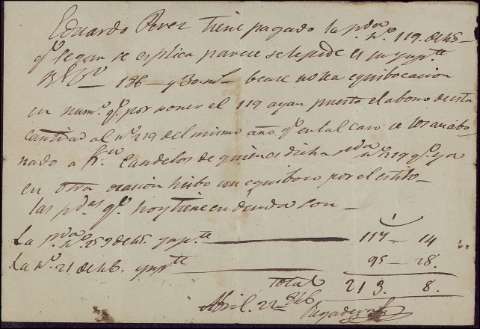 Eduardo Perez tiene pagado la pda nº 119 de 45 -
qe segun se esplica parece se le pide es su impte
Rs vn 186 - y 30 ms - vease no ha equibocacion
en numo qe por poner el 119 ayan puesto el abono de esta
cantidad al nº 219 del mismo año qe en tal caso se los an abo
nado a Fco Candelos de quien es dicha pda nº 219 qe ya
en otra ocasion hubo un equiboco por el estilo -
las pdas qe hoy tiene en deuda son -
La pda nº 259 de 45. impte 117 - 14
La nº 21 de 46. impte 95 - 28.
Total 213. 8.
Abril. 22 846